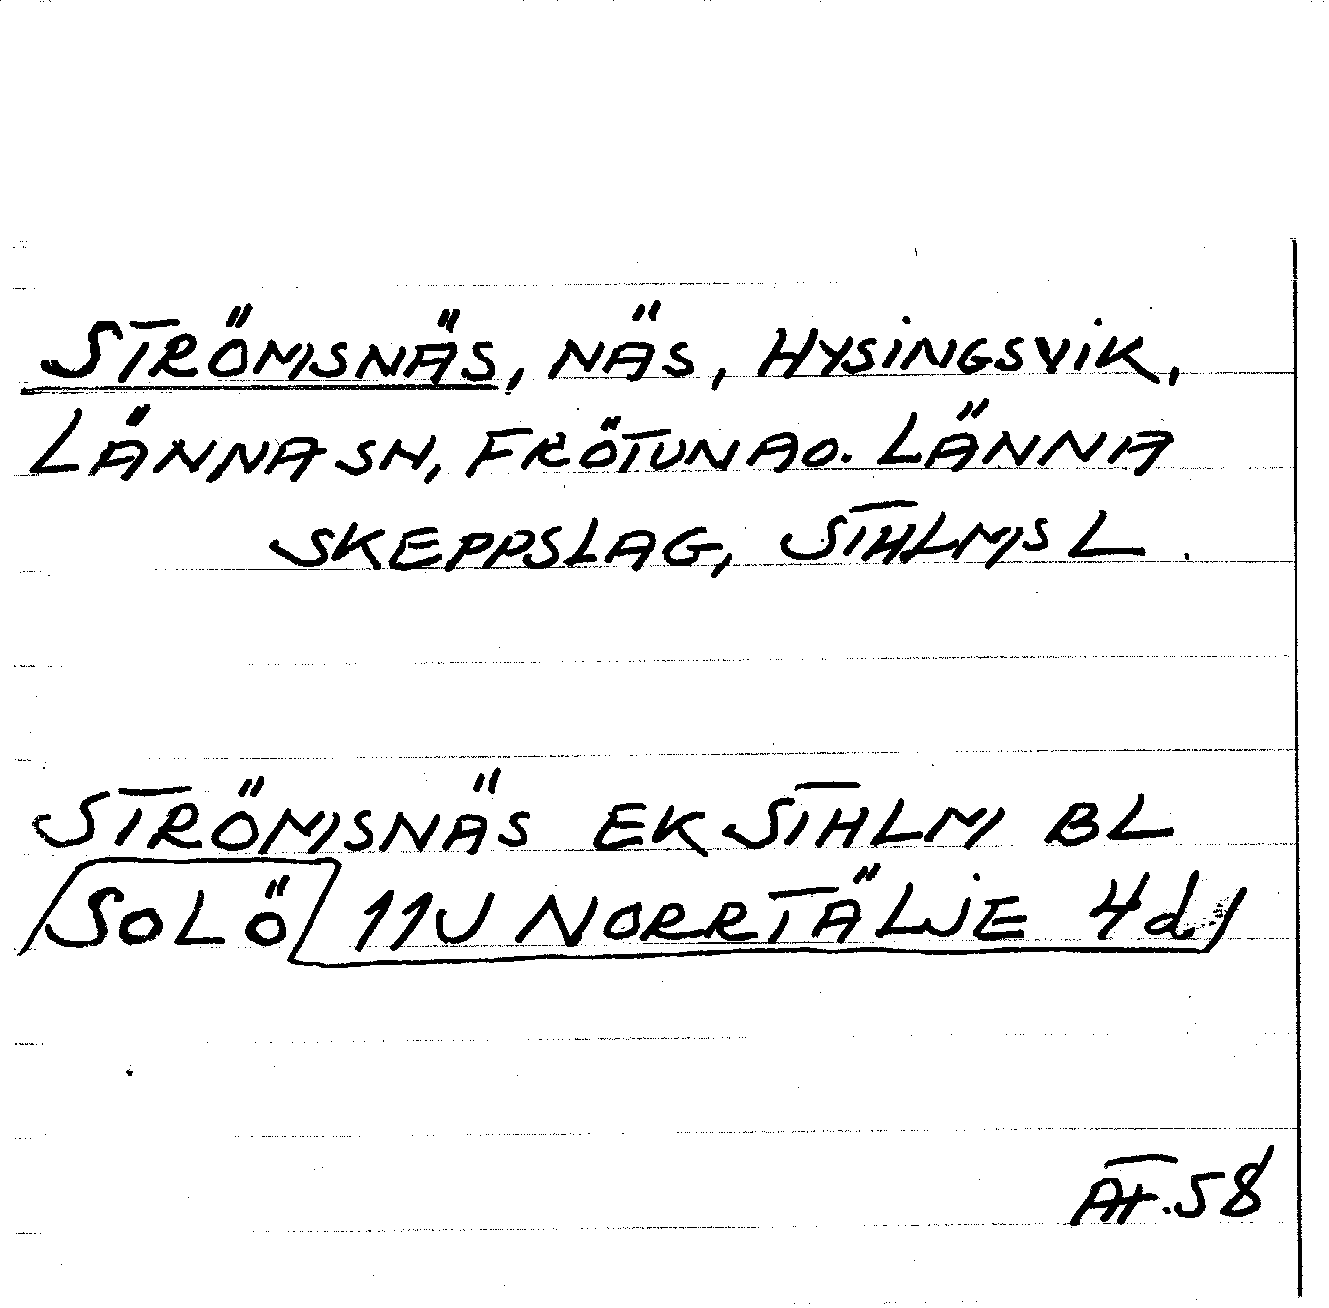 STRÖMSNÄS, NÄS, HYSINGSVIK,
LÄNNA SN, FRÖTUNA O. LÄNNA
SKEPPSLAG, STHLMS L.
STRÖMSNÄS EK STHLM BL
SOLÖ 11J NORRTÄLJE 4d
58